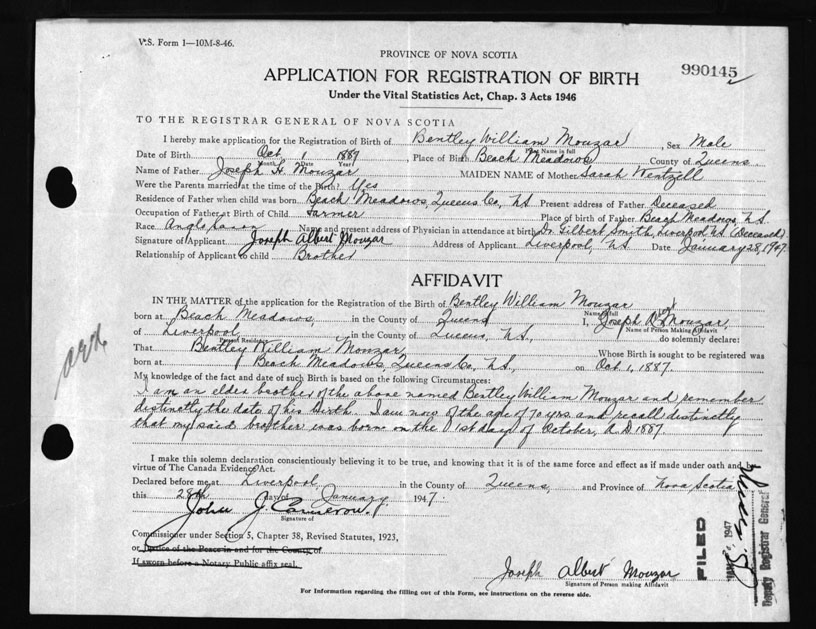 V.S. Form 1—10M-8-46.
PROVINCE OF NOVA SCOTIA
990145
APPLICATION FOR REGISTRATION OF BIRTH
Under the Vital Statistics Act, Chap. 3 Acts 1946
TO THE REGISTRAR GENERAL OF NOVA SCOTIA
I hereby make application for the Registration of Birth of Bentley William Mouzar, Sex Male
Name in full
Date of Birth Oct 1 1887, Place of Birth Beach Meadows County of Queens.
Month Date Year
Name of Father Joseph H. Mouzar MAIDEN NAME of Mother Sarah Wentzell
Were the Parents married at the time of the Birth? Yes
Residence of Father when child was born Beach Meadows, Queens Co, NS Present address of Father Deceased
Occupation of Father at Birth of Child Farmer Place of birth of Father Beach Meadows, N.S.
Race Anglo Name and present address of Physician in attendance at birth Dr. Gilbert Smith, Liverpool NS (Deceased).
Signature of Applicant Joseph Albert Mouzar Address of Applicant Liverpool, NS Date January 28, 1947.
Relationship of Applicant to child Brother
AFFIDAVIT
IN THE MATTER of the application for the Registration of the Birth of Bentley William Mouzar
Name in full
born at Beach Meadows, in the County of Queens I, Joseph Mouzar,
Name of Person Making Affidavit
of Liverpool in the County of Queens, N.S., do solemnly declare:
Person Residence
That Bentley William Mouzar Whose Birth is sought to be registered was
born at Beach Meadows, Queens Co, N.S., on Oct 1, 1887.
My knowledge of the fact and date of such Birth is based on the following Circumstances:
I am an elder brother of the above named Bentley William Mouzar and remember
distinctly the date of his birth. I am now of the age of 70 yrs. and recall distinctly
that my said brother was born on the 1st day of October, A.D. 1887.
I make this solemn declaration conscientiously believing it to be true, and knowing that it is of the same force and effect as if made under oath and by
virtue of The Canada Evidence Act.
Declared before me at Liverpool in the County of Queens, and Province of Nova Scotia
this 28th day of January 1947.
John J. Cameron.
Signature of
Commissioner under Section 5, Chapter 38, Revised Statutes, 1923,
or Justice of the Peace in and for the County of
If sworn before a Notary Public affix seal.
Joseph Albert Mouzar
Signature of Person making Affidavit
For Information regarding the filling out of this Form, see instructions on the reverse side.
FILED
1947
Deputy Registrar General